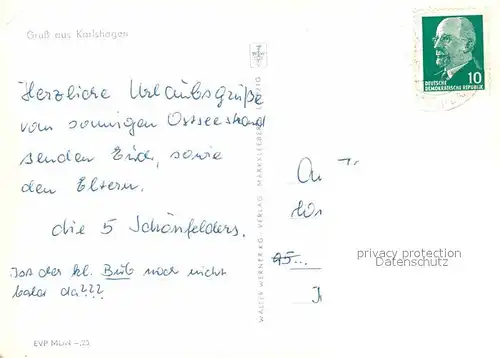 Gruß aus Karlshagen
Herzliche Urlaubsgrüße
vom sonnigen Ostseestrand
senden Euch, sowie
den Eltern.
die 5 Schönfelders.
Ist der kl. Bub noch nicht
bald da???
EVP MDN -,20
WALTER WERNER KG. VERLAG MARKKLEEBERG
DEUTSCHE
DEMOKRATISCHE REPUBLIK
10
privacy protection
Datenschutz